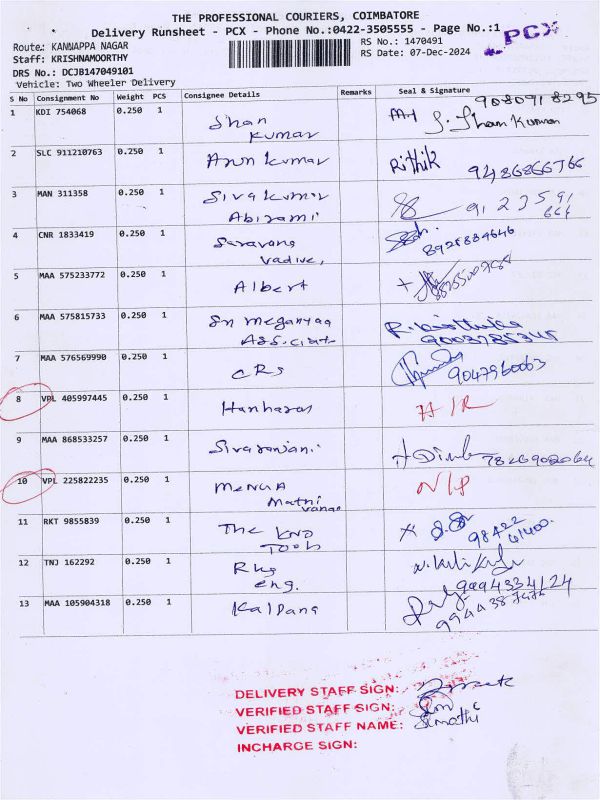 THE PROFESSIONAL COURIERS, COIMBATORE
Delivery Runsheet - PCX - Phone No.:0422-3505555 - Page No.:1
PCX
Route: KANNAPPA NAGAR
RS No.: 1470491
Staff: KRISHNAMOORTHY
RS Date: 07-Dec-2024
DRS No.: DCJB147049101
Vehicle: Two Wheeler Delivery
S No Consignment No Weight PCS Consignee Details Remarks Seal & Signature
1 KDI 754068 0.250 1 Shan 9080918295
kumar S. Sham Kumar
2 SLC 911210763 0.250 1 Arun kumar Rithik 9486866766
3 MAN 311358 0.250 1 Siva kumar 91 23591
Abirami 666
4 CNR 1833419 0.250 1 Saravana
vadivel 8925884646
5 MAA 575233772 0.250 1 Albert
6 MAA 575815733 0.250 1 Sri
9003785345
7 MAA 576569990 0.250 1 CRS 9047960063
8 VPL 405997445 0.250 1 Hariharan
9 MAA 868533257 0.250 1 Sivaranjani
10 VPL 225822235 0.250 1
11 RKT 9855839 0.250 1 The 98422
Tools 41400
12 TNJ 162292 0.250 1
eng. 9994334124
13 MAA 105904318 0.250 1 Kalpana
DELIVERY STAFF SIGN:
VERIFIED STAFF SIGN:
VERIFIED STAFF NAME: Sumathi
INCHARGE SIGN: